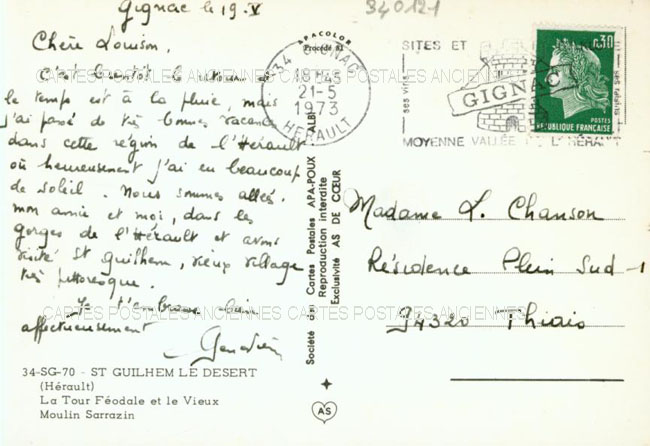 Gignac le 19.V
340121
Chère Louison,
C'est bientôt le retour et
le temps est à la pluie, mais
j'ai passé de très bonnes vacances
dans cette région de l'Hérault
où heureusement j'ai eu beaucoup
de soleil. Nous sommes allés,
mon amie et moi, dans les
gorges de l'Hérault et avons
visité St Guilhem, vieux village
très pittoresque.
Je t'embrasse bien
affectueusement
34-SG-70 - ST GUILHEM LE DESERT
(Hérault)
La Tour Féodale et le Vieux
Moulin Sarrazin
APACOLOR
Procédé 83
Société des Cartes Postales APA-POUX ALBI
Reproduction interdite
Exclusivité AS DE CŒUR
AS
34 GIGNAC
18H45
21-5
1973
HERAULT
SITES ET
GIGNAC
ses vins
MOYENNE VALLÉE DE L'HÉRAULT
0,30
POSTES
REPUBLIQUE FRANÇAISE
Madame L. Chanson
Résidence Plein Sud-1
94320 Thiais
CARTES POSTALES ANCIENNES CARTES POSTALES ANCIENNES
CARTES POSTALES ANCIENNES CARTES POSTALES ANCIENNES